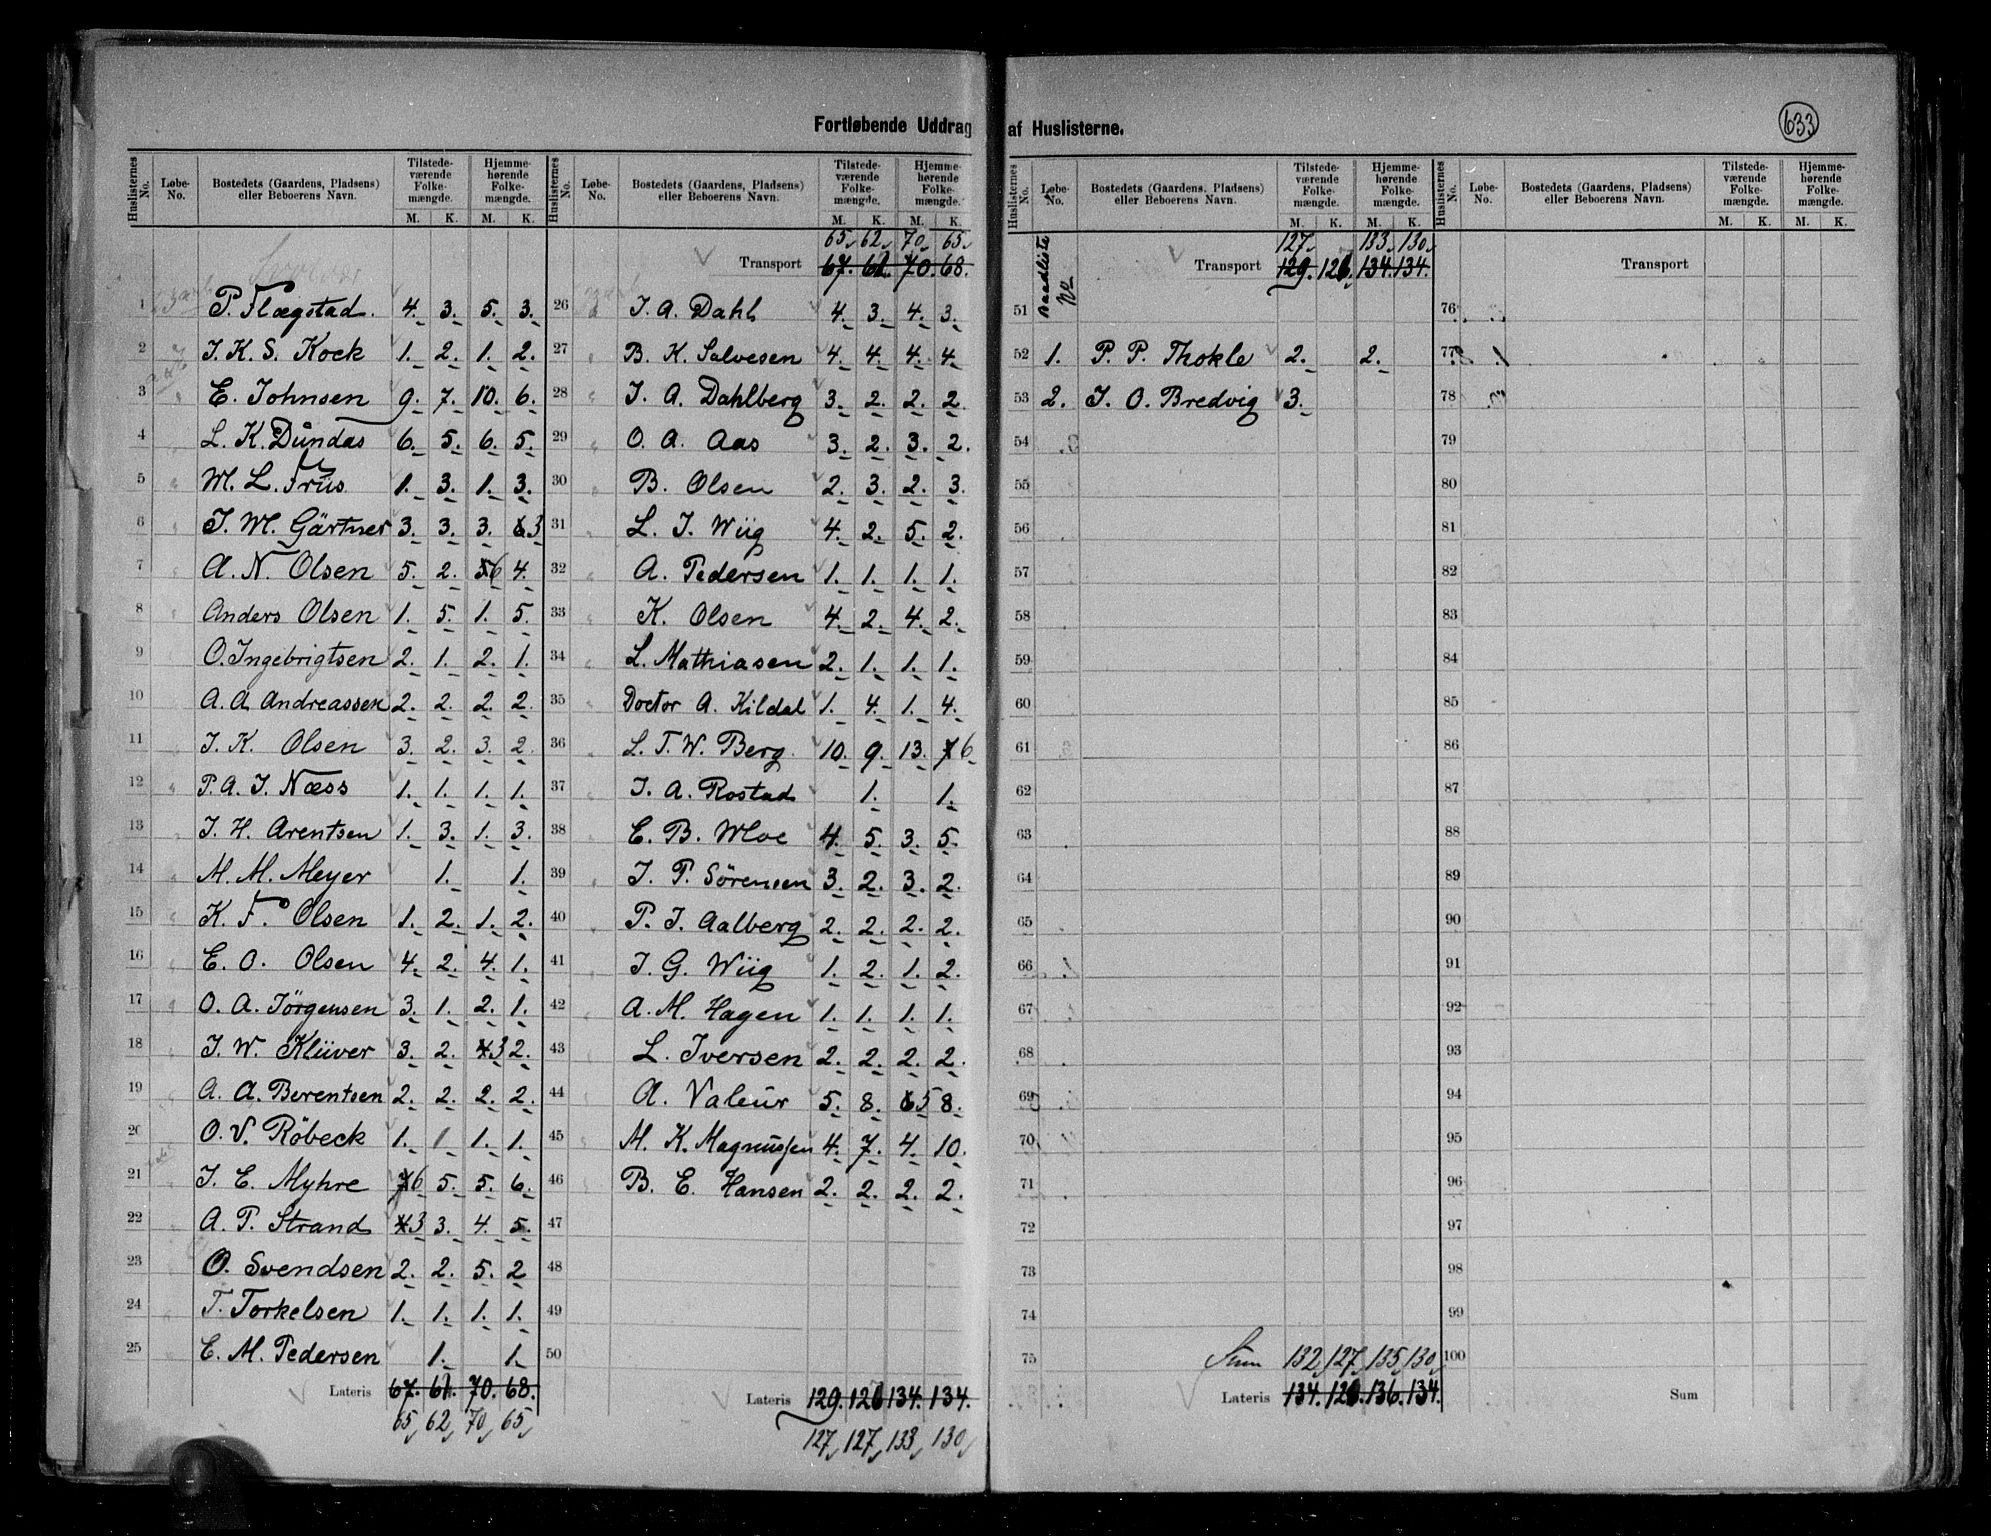 633
Fortløbende Uddrag af Huslisterne.
Huslisternes No. Løbe-No. Bostedets (Gaardens, Pladsens) eller Beboerens Navn. Tilstedeværende Folkemængde. M. K. Hjemmehørende Folkemængde. M. K.
Svolvær
1 P. Flægstad. 4. 3. 5. 3.
2 J. K. S. Kock 1. 2. 1. 2.
3 E. Johnsen 9. 7. 10. 6.
4 L. K. Dundas 6. 5. 6. 5.
5 M. L. Friis 1. 3. 1. 3.
6 J. M. Gärtner 3. 3. 3. 3
7 A. N. Olsen 5. 2. 6 4.
8 Anders Olsen 1. 5. 1. 5.
9 O. Ingebrigtsen 2. 1. 2. 1.
10 A. A. Andreassen 2. 2. 2. 2.
11 J. K. Olsen 3. 2. 3. 2.
12 P. A. J. Næss 1. 1. 1. 1.
13 J. H. Arentsen 1. 3. 1. 3.
14 M. M. Meyer 1. 1.
15 K. F. Olsen 1. 2. 1. 2.
16 E. O. Olsen 4. 2. 4. 1.
17 O. A. Jörgensen 3. 1. 2. 1.
18 J. W. Klüver 3. 2. 3 2.
19 A. A. Berentsen 2. 2. 2. 2.
20 O. V. Röbeck 1. 1 1. 1.
21 J. E. Myhre 6 5. 5. 6.
22 A. P. Strand 3 3. 4. 5.
23 O. Svendsen 2. 2. 5. 2
24 T. Torkelsen 1. 1. 1. 1.
25 E. M. Pedersen 1. 1.
Lateris 67. 61. 70. 68.
65 62 70 65
Huslisternes No. Løbe-No. Bostedets (Gaardens, Pladsens) eller Beboerens Navn. Tilstedeværende Folkemængde. M. K. Hjemmehørende Folkemængde. M. K.
65 62 70 65
Transport 67. 61. 70. 68.
26 J. A. Dahl 4. 3. 4. 3.
27 B. K. Salvesen 4. 4. 4. 4.
28 J. A. Dahlberg 3. 2. 2. 2.
29 O. A. Aas 3. 2. 3. 2.
30 B. Olsen 2. 3. 2. 3.
31 L. J. Wiig 4. 2. 5. 2.
32 A. Pedersen 1. 1. 1. 1.
33 K. Olsen 4. 2. 4. 2.
34 L. Mathiasen 2. 1. 1. 1.
35 Doctor A. Kildal 1. 4. 1. 4.
36 L. T. W. Berg. 10. 9. 13. 6
37 J. A. Rostad 1. 1.
38 E. B. Moe 4. 5. 3. 5.
39 J. P. Sörensen 3. 2. 3. 2.
40 P. J. Aalberg 2. 2. 2. 2.
41 J. G. Wiig 1. 2. 1. 2.
42 A. M. Hagen 1. 1. 1. 1.
43 L. Iversen 2. 2. 2. 2.
44 A. Valeur 5. 8. 5 8.
45 M. K. Magnussen 4. 7. 4. 10.
46 B. E. Hansen 2. 2. 2. 2.
47
48
49
50
Lateris 129. 126 134. 134.
127 127 133 130
Huslisternes No. Løbe-No. Bostedets (Gaardens, Pladsens) eller Beboerens Navn. Tilstedeværende Folkemængde. M. K. Hjemmehørende Folkemængde. M. K.
127 133 130
Transport 129. 126. 134. 134.
51 Baadliste No
52 1. P. P. Thokle 2. 2.
53 2. J. O. Bredvig 3.
54
55
56
57
58
59
60
61
62
63
64
65
66
67
68
69
70
71
72
73
74
75 Sum 132 127 135 130
Lateris 134. 126. 136. 134.
Huslisternes No. Løbe-No. Bostedets (Gaardens, Pladsens) eller Beboerens Navn. Tilstedeværende Folkemængde. M. K. Hjemmehørende Folkemængde. M. K.
Transport
76
77
78
79
80
81
82
83
84
85
86
87
88
89
90
91
92
93
94
95
96
97
98
99
100
Sum